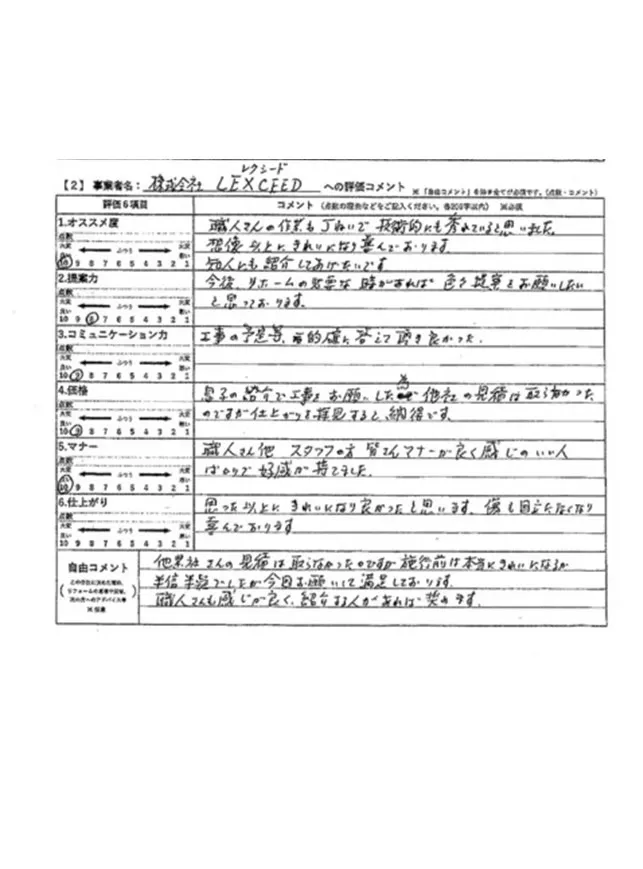 レクシード
【2】 事業者名： 株式会社 LEXCEED への評価コメント ※「自由コメント」を除き全てが必須です。（点数・コメント）
評価6項目 コメント（点数の理由などをご記入ください。各200字以内） ※必須
1.オススメ度 職人さんの作業も丁ねいで 技術的にも秀れていると思いました。
点数 想像以上にきれいになり喜んでおります。
大変良い ふつう 大変悪い
10 9 8 7 6 5 4 3 2 1 知人にも紹介してあげたいです
2.提案力 今後、リホームの必要な時があれば 色々提案をお願いしたい
点数 と思っております。
大変良い ふつう 大変悪い
10 9 8 7 6 5 4 3 2 1
3.コミュニケーション力 工事の予定等、的確に答えて頂き良かった.
点数
大変良い ふつう 大変悪い
10 9 8 7 6 5 4 3 2 1
4.価格 息子の紹介で工事をお願いした為 他社の見積は取らなかった
点数 のですが仕上がりを拝見すると、納得です。
大変良い ふつう 大変悪い
10 9 8 7 6 5 4 3 2 1
5.マナー 職人さん他 スタッフの方 皆さんマナーが良く感じのいい人
点数 ばかりで 好感が持てました.
大変良い ふつう 大変悪い
10 9 8 7 6 5 4 3 2 1
6.仕上がり 思った以上に きれいになり良かったと思います. 傷も目立たなくなり
点数 喜んでおります
大変良い ふつう 大変悪い
10 9 8 7 6 5 4 3 2 1
自由コメント 他業社さんの見積は取らなかったのですが 施行前は本当にきれいになるか
この会社に決めた理由、
リフォームの感想や記録、 半信半疑でしたが今回お願いして満足しております.
次の方へのアドバイス等
※任意 職人さんも感じが良く、紹介する人があれば 奨めます.